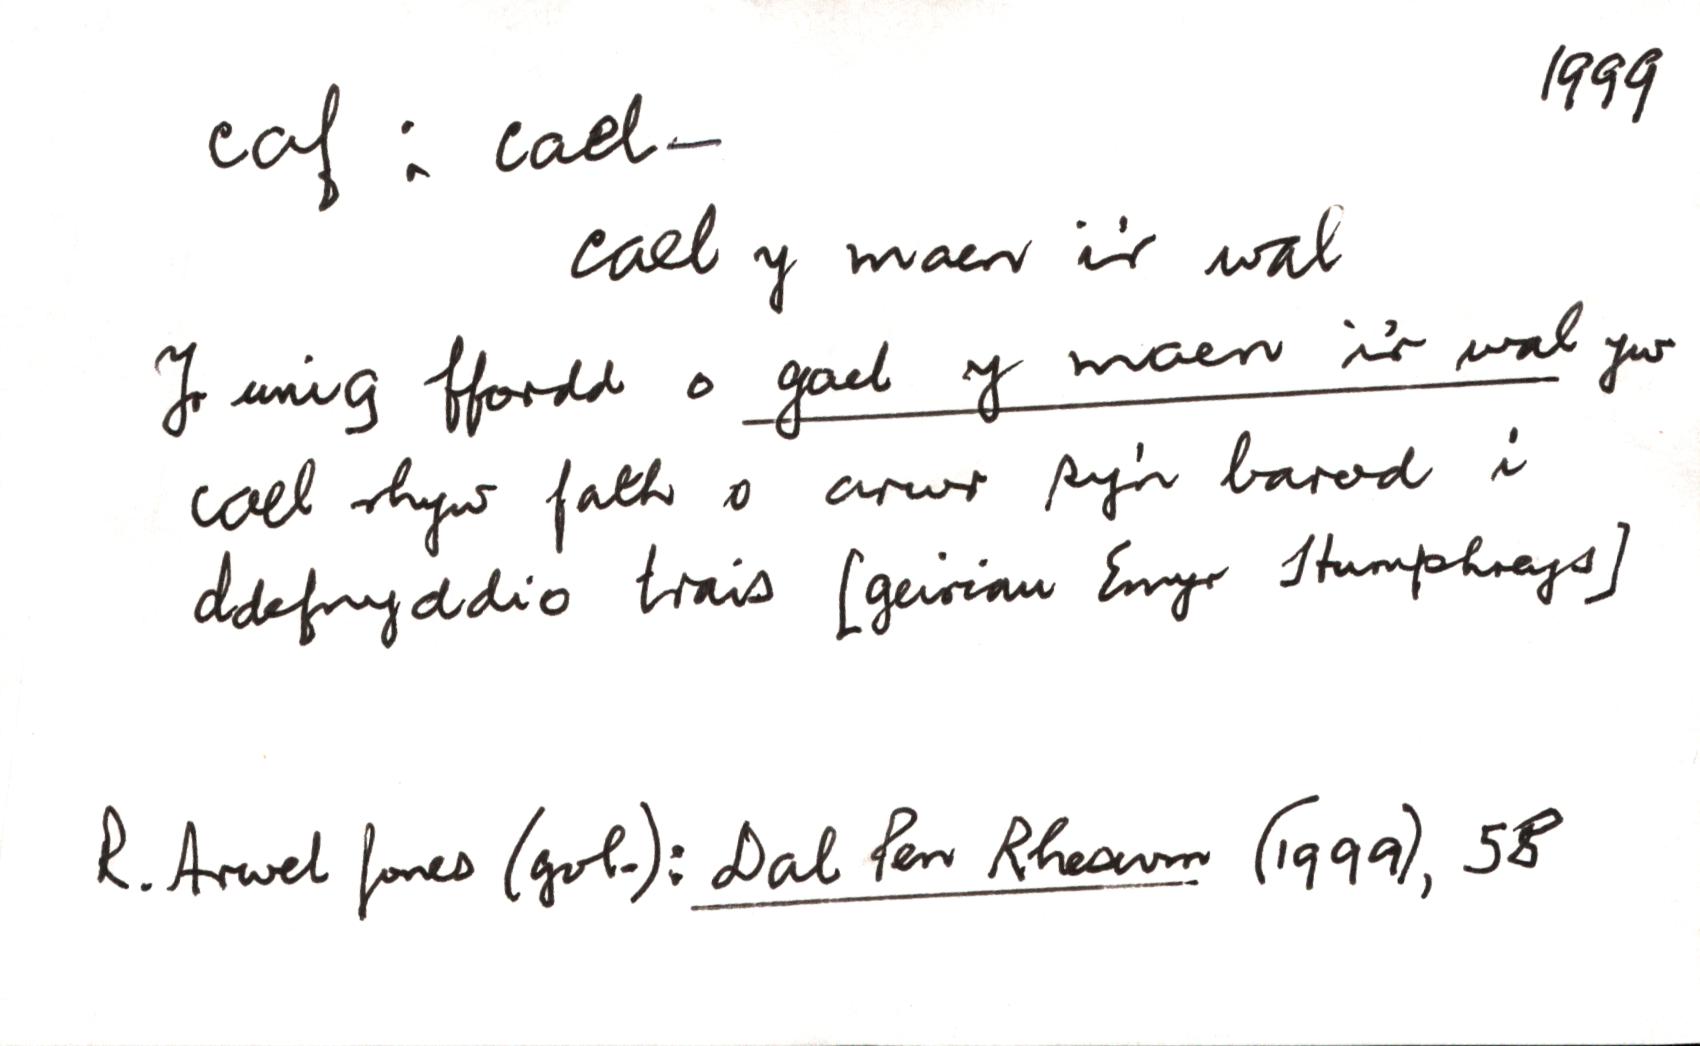 1999
caf : cael –
cael y maen i'r wal
Yr unig ffordd o gael y maen i'r wal yw
cael rhyw fath o arwr sy'n barod i
ddefnyddio trais [geiriau Emyr Humphreys]
R. Arwel Jones (gol.): Dal Pen Rheswm (1999), 58